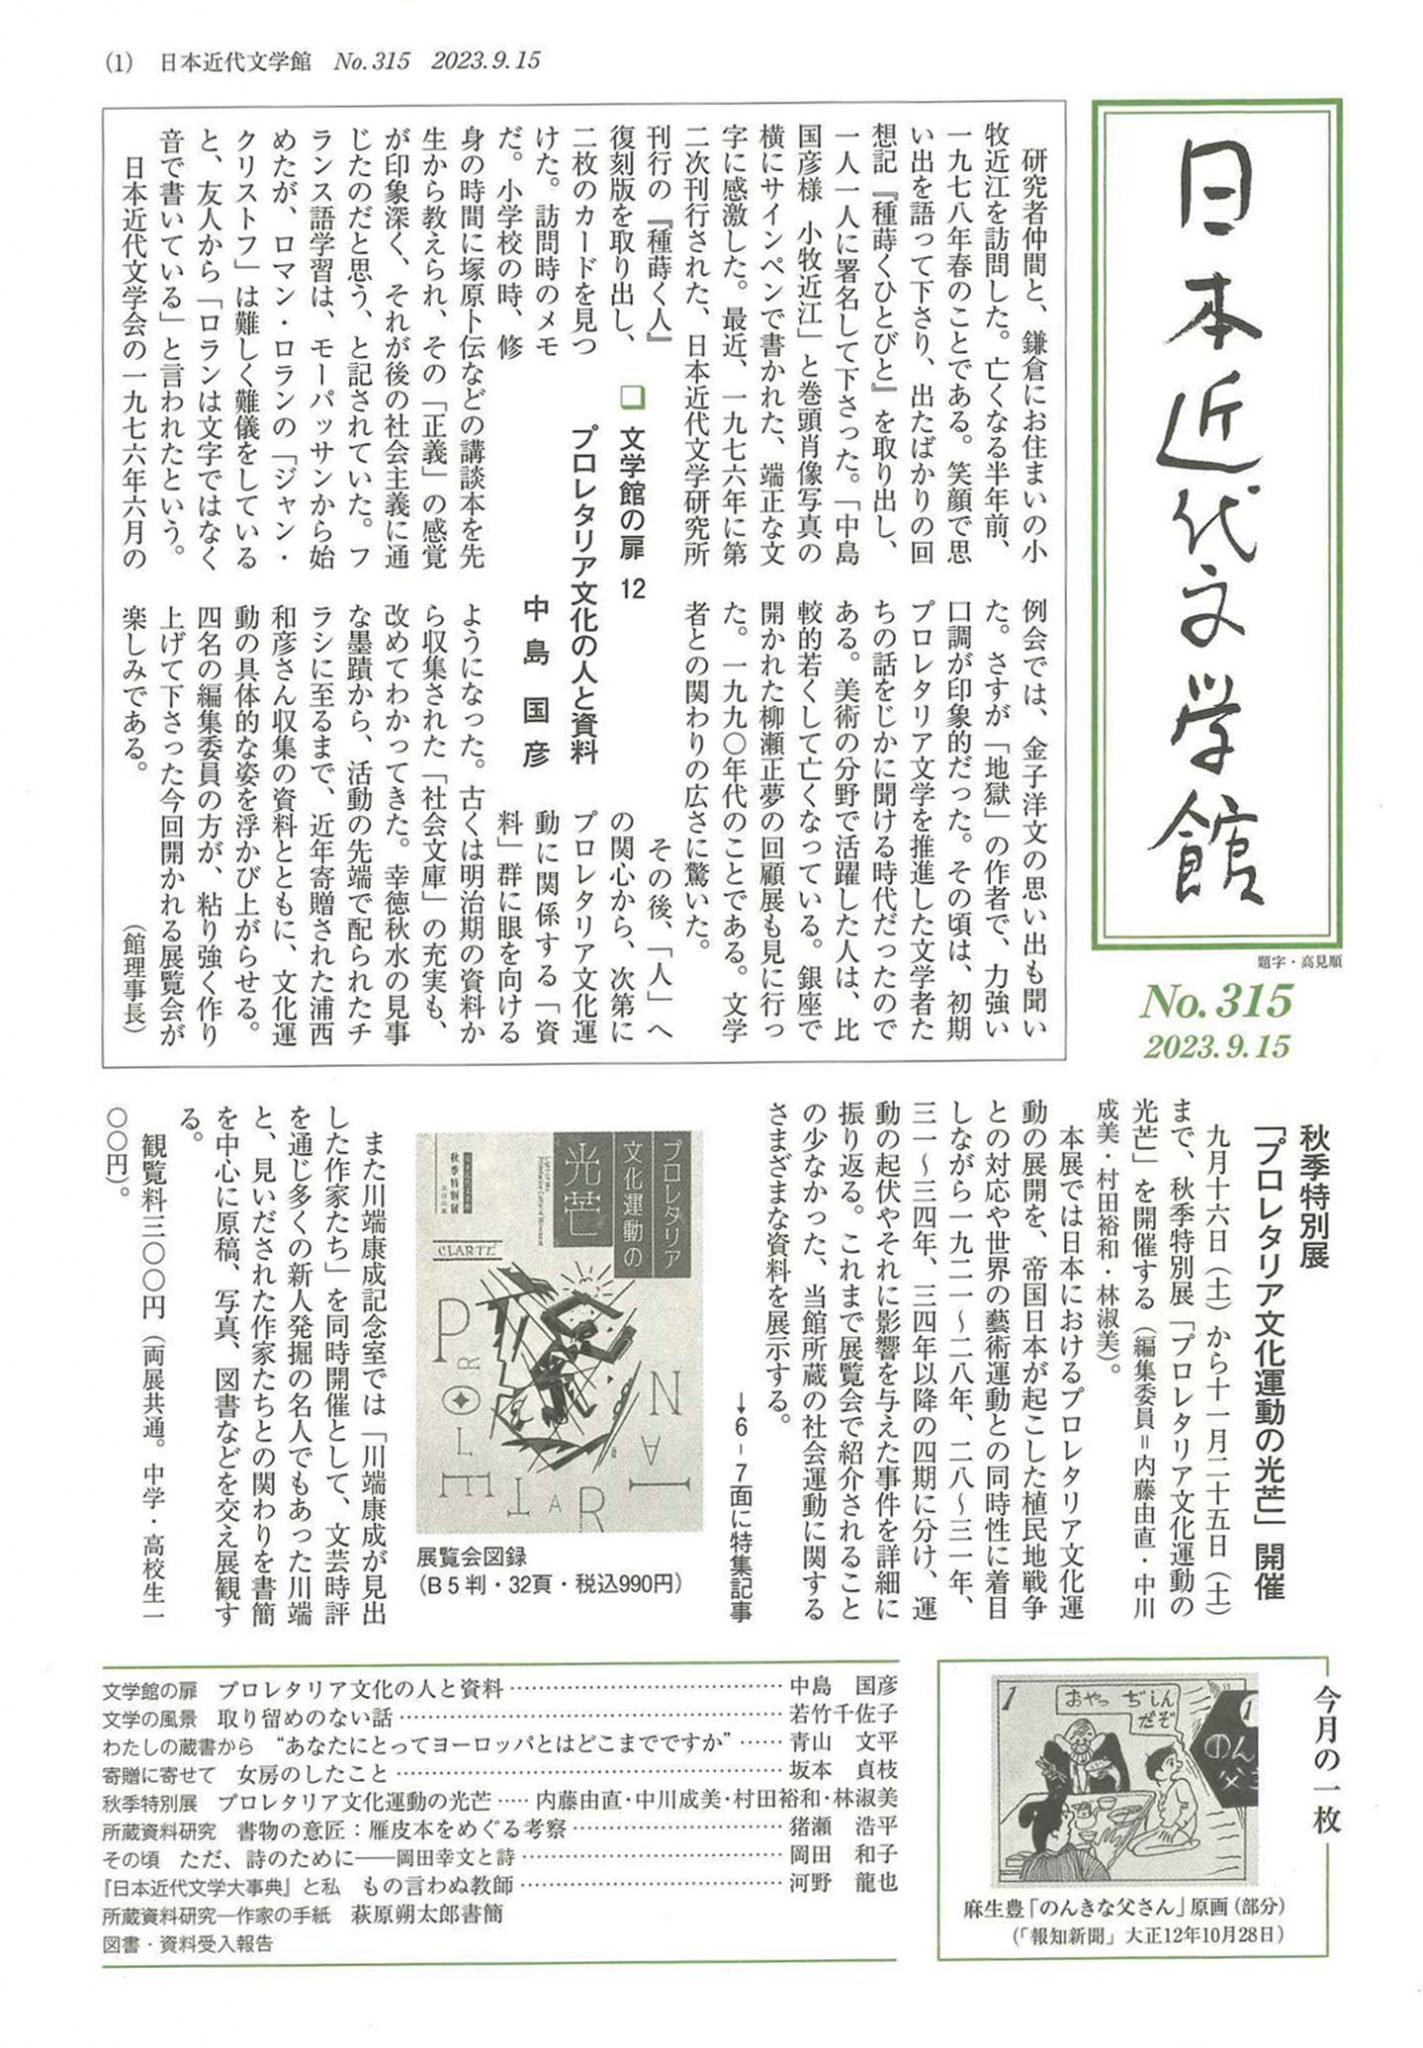 (1) 日本近代文学館 No.315 2023.9.15
日本近代文学館
題字・高見順
No.315
2023.9.15
研究者仲間と、鎌倉にお住まいの小
牧近江を訪問した。亡くなる半年前、
一九七八年春のことである。笑顔で思
い出を語って下さり、出たばかりの回
想記『種蒔くひとびと』を取り出し、
一人一人に署名して下さった。「中島
国彦様 小牧近江」と巻頭肖像写真の
横にサインペンで書かれた、端正な文
字に感激した。最近、一九七六年に第
二次刊行された、日本近代文学研究所
刊行の『種蒔く人』
復刻版を取り出し、
二枚のカードを見つ
けた。訪問時のメモ
だ。小学校の時、修
身の時間に塚原卜伝などの講談本を先
生から教えられ、その「正義」の感覚
が印象深く、それが後の社会主義に通
じたのだと思う、と記されていた。フ
ランス語学習は、モーパッサンから始
めたが、ロマン・ロランの「ジャン・
クリストフ」は難しく難儀をしている
と、友人から「ロランは文字ではなく
音で書いている」と言われたという。
日本近代文学会の一九七六年六月の
❏ 文学館の扉 12
プロレタリア文化の人と資料
中島国彦
例会では、金子洋文の思い出も聞い
た。さすが「地獄」の作者で、力強い
口調が印象的だった。その頃は、初期
プロレタリア文学を推進した文学者た
ちの話をじかに聞ける時代だったので
ある。美術の分野で活躍した人は、比
較的若くして亡くなっている。銀座で
開かれた柳瀬正夢の回顧展も見に行っ
た。一九九〇年代のことである。文学
者との関わりの広さに驚いた。
その後、「人」へ
の関心から、次第に
プロレタリア文化運
動に関係する「資
料」群に眼を向ける
ようになった。古くは明治期の資料か
ら収集された「社会文庫」の充実も、
改めてわかってきた。幸徳秋水の見事
な墨蹟から、活動の先端で配られたチ
ラシに至るまで、近年寄贈された浦西
和彦さん収集の資料とともに、文化運
動の具体的な姿を浮かび上がらせる。
四名の編集委員の方が、粘り強く作り
上げて下さった今回開かれる展覧会が
楽しみである。
（館理事長）
秋季特別展
「プロレタリア文化運動の光芒」開催
九月十六日（土）から十一月二十五日（土）
まで、秋季特別展「プロレタリア文化運動の
光芒」を開催する（編集委員＝内藤由直・中川
成美・村田裕和・林淑美）。
本展では日本におけるプロレタリア文化運
動の展開を、帝国日本が起こした植民地戦争
との対応や世界の藝術運動との同時性に着目
しながら一九二一～二八年、二八～三一年、
三一～三四年、三四年以降の四期に分け、運
動の起伏やそれに影響を与えた事件を詳細に
振り返る。これまで展覧会で紹介されること
の少なかった、当館所蔵の社会運動に関する
さまざまな資料を展示する。
→6-7面に特集記事
プロレタリア
文化運動の
光芒
秋季特別展
CLARTÉ
PROLETARIAN
展覧会図録
（B5判・32頁・税込990円）
また川端康成記念室では「川端康成が見出
した作家たち」を同時開催として、文芸時評
を通じ多くの新人発掘の名人でもあった川端
と、見いだされた作家たちとの関わりを書簡
を中心に原稿、写真、図書などを交え展観す
る。
観覧料三〇〇円（両展共通。中学・高校生一
〇〇円）。
文学館の扉 プロレタリア文化の人と資料……中島 国彦
文学の風景 取り留めのない話……若竹千佐子
わたしの蔵書から “あなたにとってヨーロッパとはどこまでですか”……青山 文平
寄贈に寄せて 女房のしたこと……坂本 貞枝
秋季特別展 プロレタリア文化運動の光芒……内藤由直・中川成美・村田裕和・林淑美
所蔵資料研究 書物の意匠：雁皮本をめぐる考察……猪瀬 浩平
その頃 ただ、詩のために――岡田幸文と詩……岡田 和子
『日本近代文学大事典』と私 もの言わぬ教師……河野 龍也
所蔵資料研究―作家の手紙 萩原朔太郎書簡
図書・資料受入報告
今月の一枚
1
おやっ ぢしん
だぞ
のん
父さ
麻生豊「のんきな父さん」原画（部分）
（「報知新聞」大正12年10月28日）